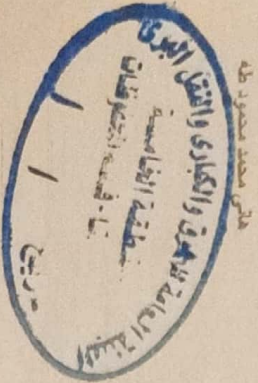 هانى محمد محمود طه
الهيئة العامة للطرق والكبارى والنقل البرى
المنطقة الخامسة
تاريخ / /